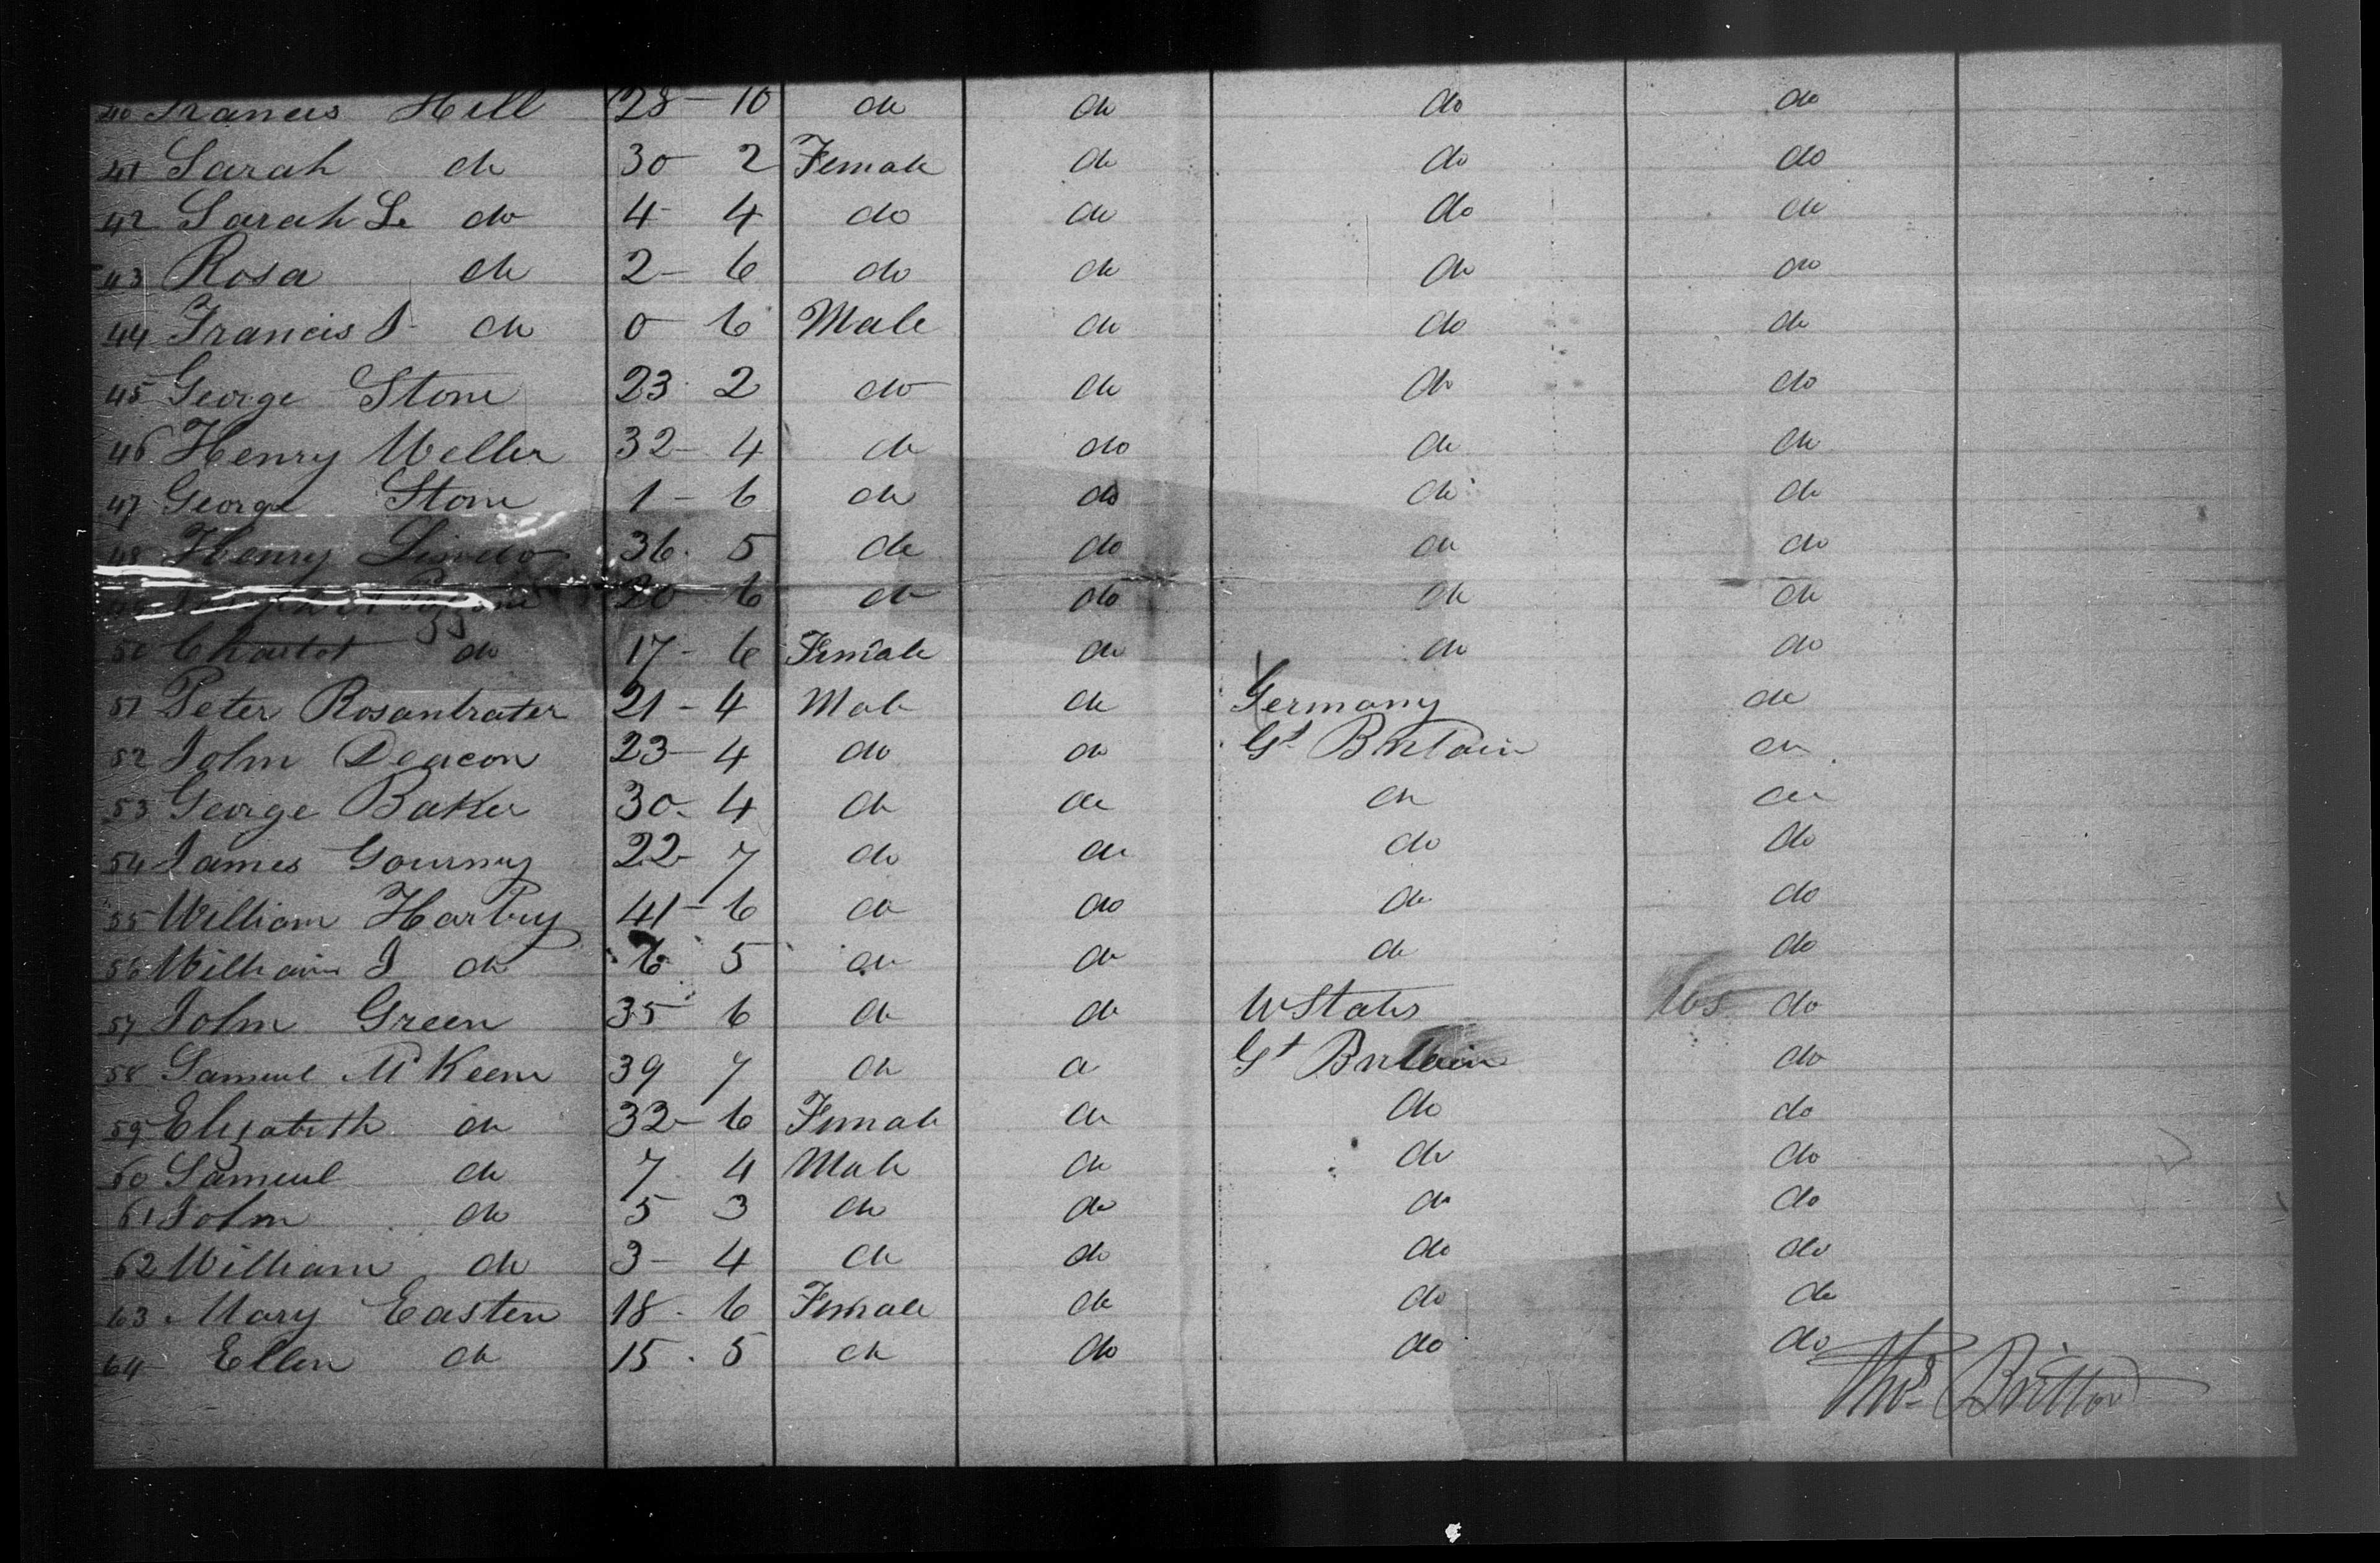 40 Francis Hill 28 - 10 do do do do
41 Sarah do 30 2 Female do do do
42 Sarah L. do 4 - 4 do do do do
43 Rosa do 2 - 6 do do do do
44 Francis do 0 - 6 Male do do do
45 George Stone 23 . 2 do do do do
46 Henry Weller 32 - 4 do do do do
47 George Stone 1 - 6 do do do do
48 Henry 36 . 5 do do do do
20 - 6 do do do do
50 Charlot do 17 - 6 Female do do do
51 Peter Rosantrater 21 - 4 Male do Germany do
52 John Deacon 23 - 4 do do Gt Britain do
53 George Baker 30 . 4 do do do do
54 James Gourney 22 - 7 do do do do
55 William Harbuy 41 - 6 do do do do
56 William J do 6 . 5 do do do do
57 John Green 35 - 6 do do U States 165 do
58 Samuel McKeene 39 7 do do Gt Britain do
59 Elizabeth do 32 - 6 Female do do do
60 Samuel do 7 . 4 Male do do do
61 John do 5 3 do do do do
62 William do 3 - 4 do do do do
63 Mary Easten 18 . 6 Female do do do
64 Ellen do 15 . 5 do do do do
Thos Britton